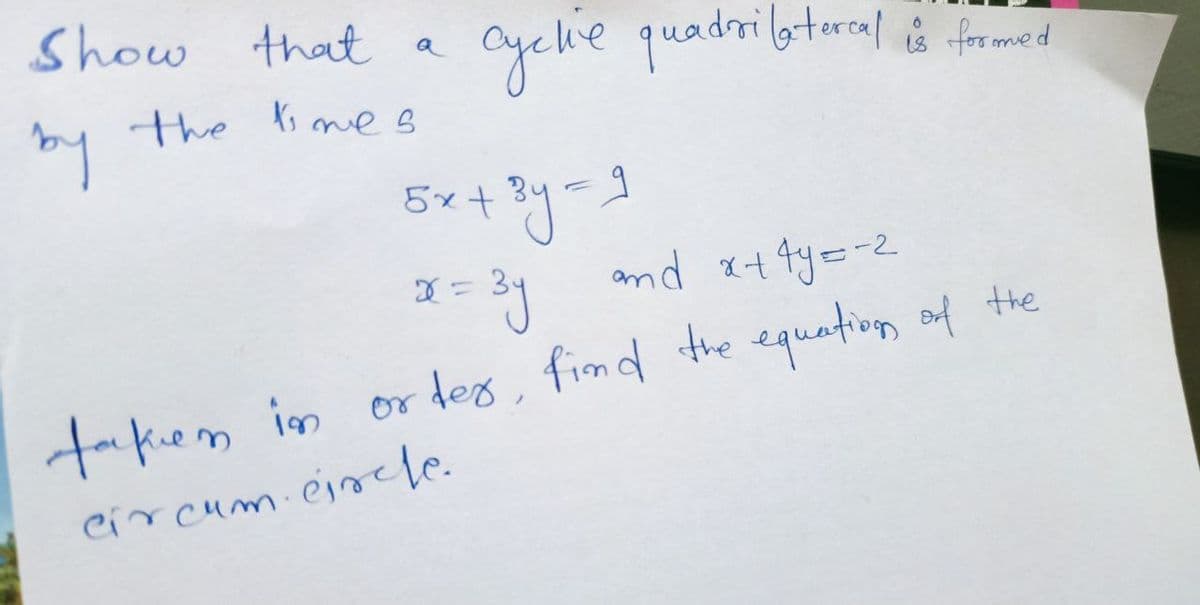 Show that a cyclic quadrilateral is formed
by the lines
5x + 3y = 9
x = 3y and x + 4y = -2
taken in order, find the equation of the
circum.circle.